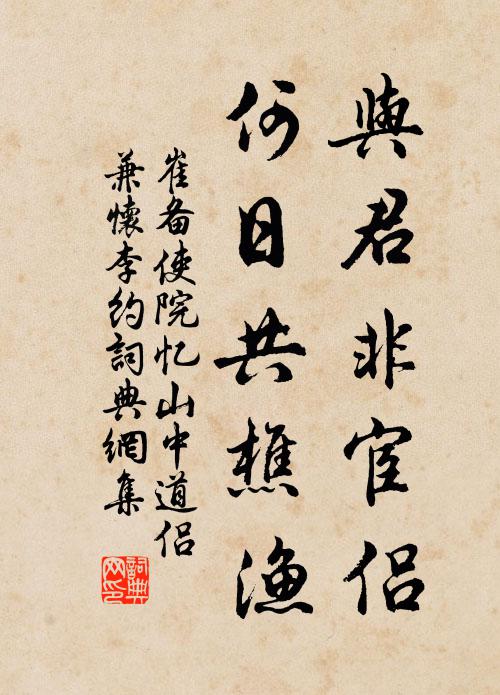 與君非宦侣
何日共樵渔
崔备使院忆山中道侣
兼懷李約詞典網集
詞典网印